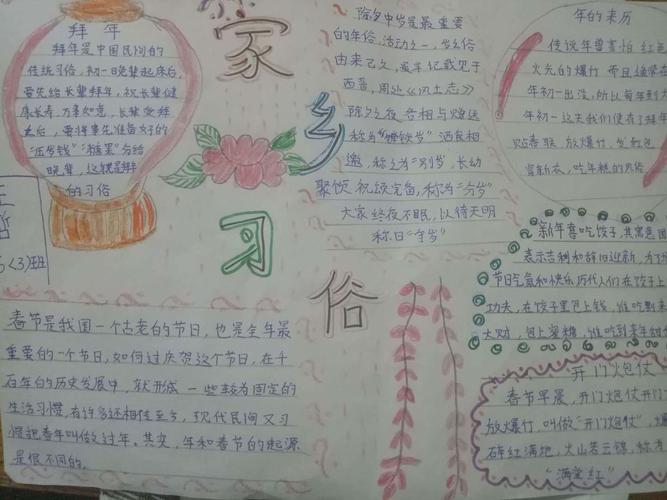 拜年
拜年是中国民间的
传统习俗,初一晚辈起床后,
要先给长辈拜年,祝长辈健
康长寿,万事如意,长辈受拜
之后,要将事先准备好的
“压岁钱”“糖果”分给
晚辈,这就是拜
的习俗
<3>班
家
乡
习
俗
除夕守岁是最重要
的年俗活动之一,守岁俗
由来已久,最早记载见于
西晋,周处《风土志》
除夕之夜各相与赠送
称为“馈岁”酒食相
邀,称之为“别岁”,长幼
聚饮祝颂完备,称为“分岁”
大家终夜不眠,以待天明
称曰“守岁”
年的来历
传说年兽害怕红色
火光的爆竹而且通常在
年初一出没,所以每年到大
年初一这天我们便有了拜年
贴春联,放爆竹,发红包
穿新衣,吃年糕的风俗
新年喜吃饺子,其寓意团
表示吉利和辞旧迎新,为了
节日气氛和快乐历代人们在饺子
功夫,在饺子里包上钱,谁吃到来
大财,包上蜜糖,谁吃到来年甜
春节是我国一个古老的节日,也是全年最
重要的一个节日,如何过庆贺这个节日,在千
百年的历史发展中,就形成一些较为固定的
生活习惯,有许多还相传至今,现代民间又习
惯把春年叫做过年。其实,年和春节的起源
是很不同的。
开门炮仗
春节早晨,开门炮仗开门
放爆竹,叫做“开门炮仗”,爆
碎红满地,火山若云锦,称为
“满堂红”